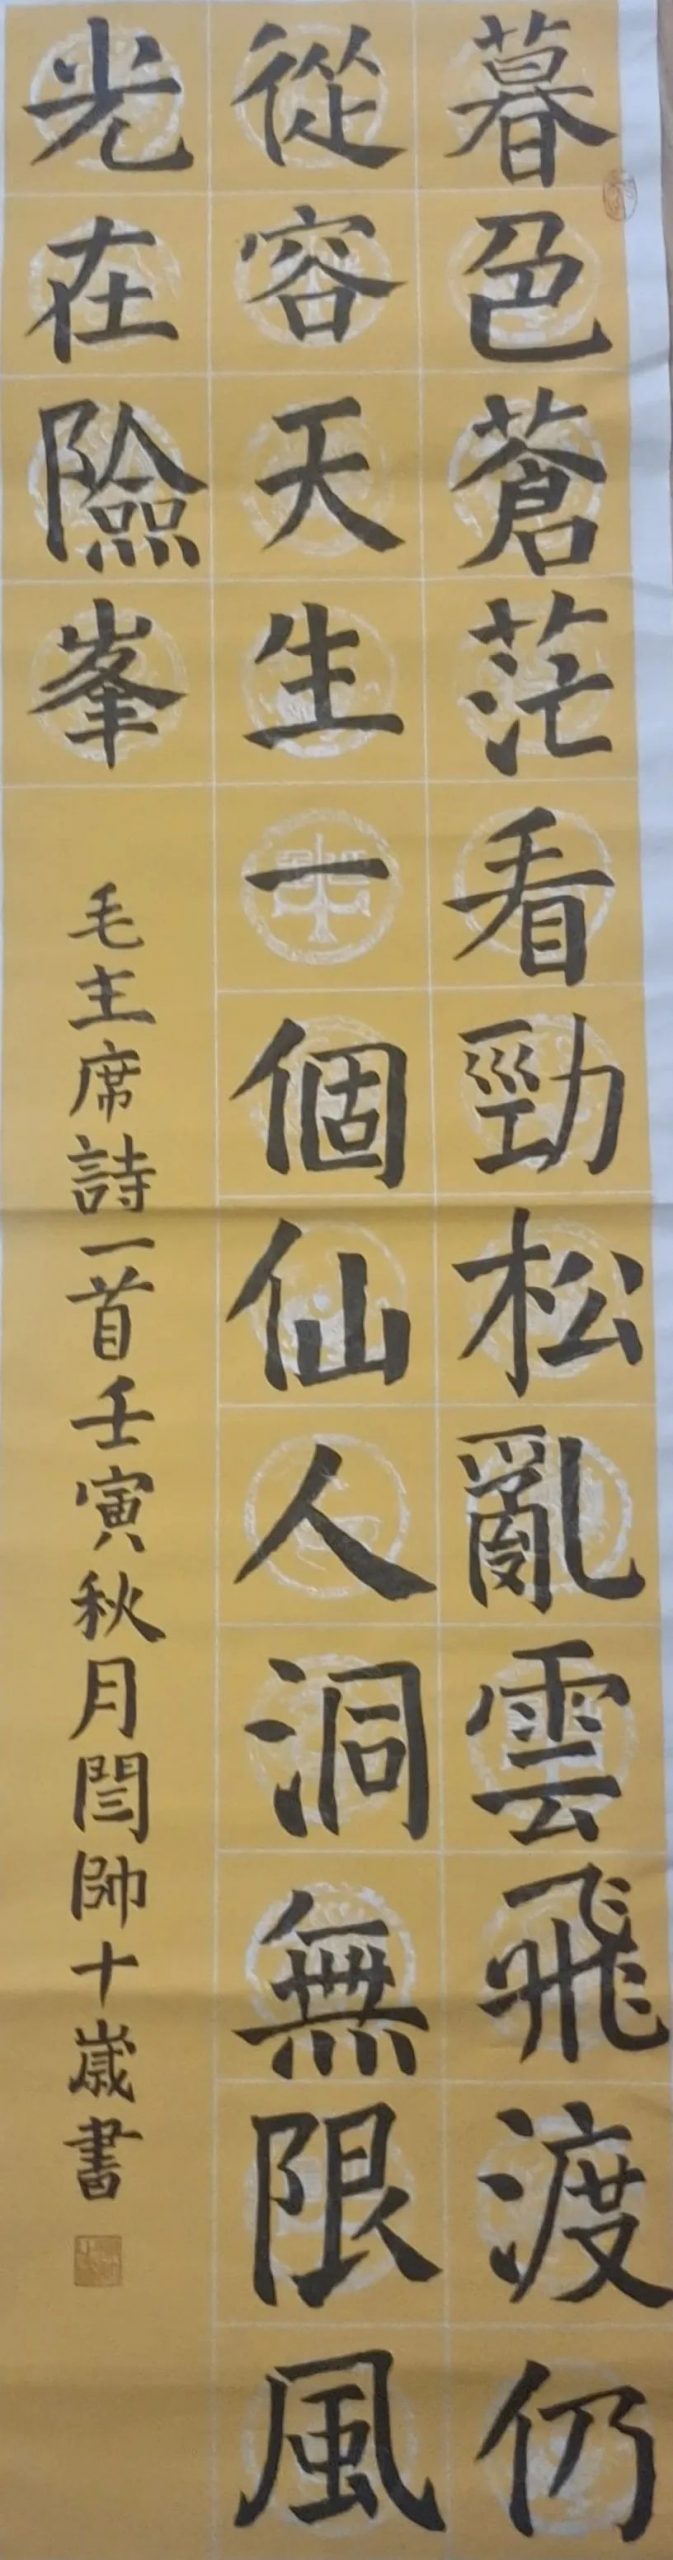 暮色蒼茫看勁松亂雲飛渡仍
從容天生一個仙人洞無限風
光在險峯
毛主席詩一首壬寅秋月閆帥十歲書